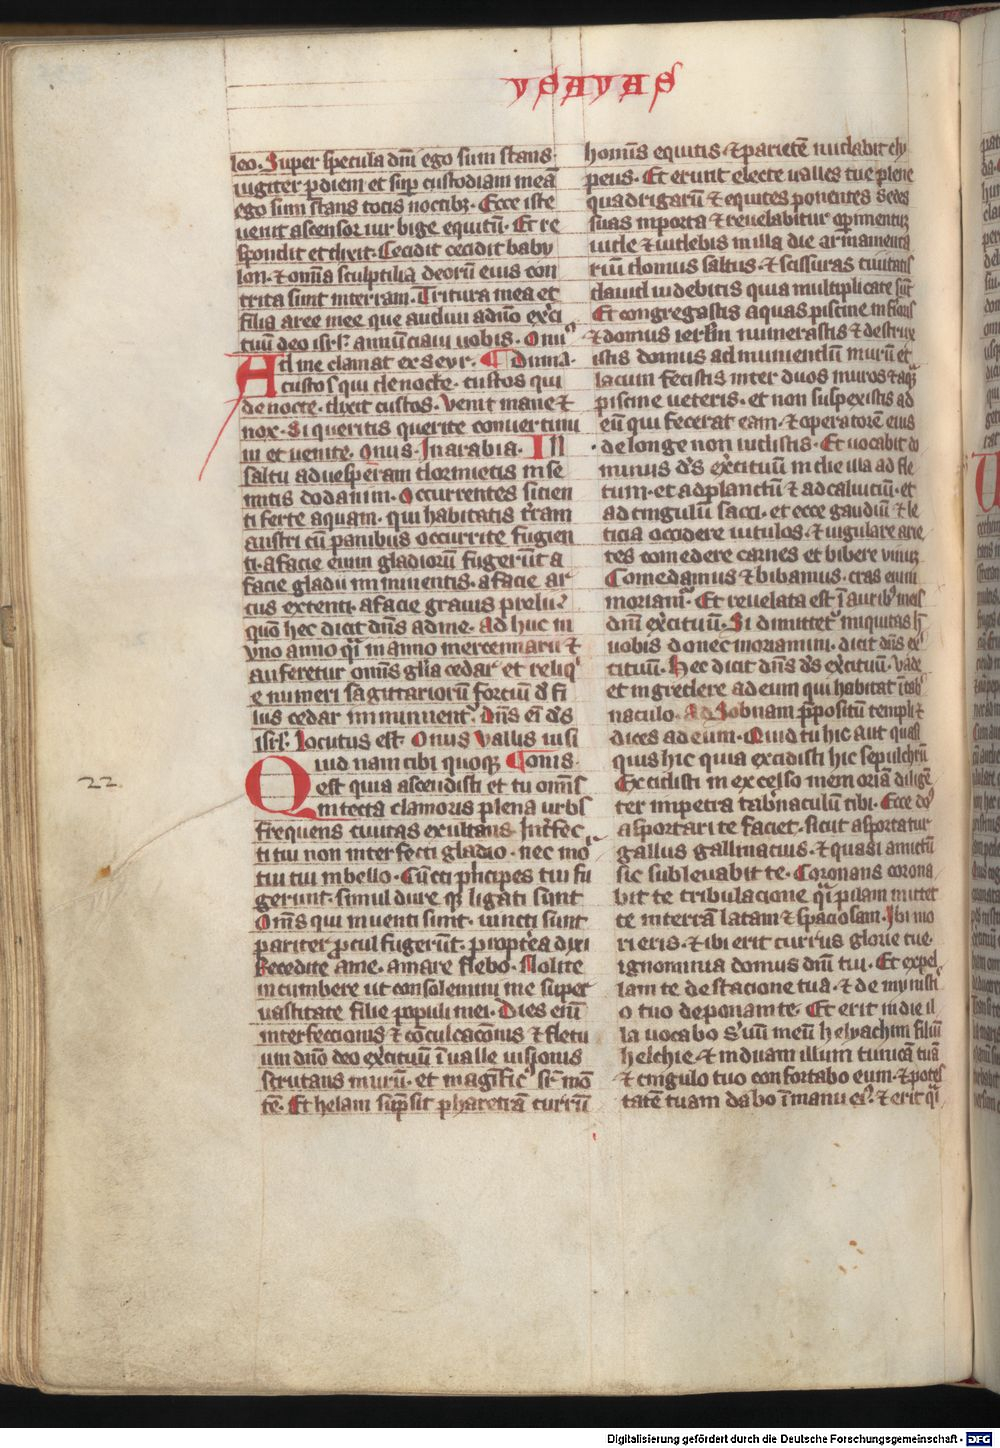 ysayas
leo. Super specula dni ego sum stans
iugiter p diem et sup custodiam meā
ego sum stans totis noctibꝫ. Ecce iste
uenit ascensor uir bige equitū. Et re
spondit et dixit. Cecidit cecidit baby
lon. ⁊ omīa sculptilia deorū eius con
trita sunt in terram. Tritura mea et
filia aree mee que audiui a dnō exci
tuū deo isrl annūciaui uobis. Onus
Ad me clamat ex seyr. Duma.
custos qui de nocte. custos qui
de nocte. dixit custos. Venit mane ⁊
nox. Si queritis querite conuertimi
ni et uenite. Onus. In arabia. IN
saltu ad uesperam dormietis in se
mitis dodanim. Occurrentes sitien
ti ferte aquam. qui habitatis tr̄ram
austri cū panibus occurrite fugien
ti. a facie enim gladiorū fugerūt a
facie gladii imminentis. a facie ar
cus extenti. a facie grauis prelii.
quō hec dicit dn̄s ad me. Ad huc in
vno anno q̄i in anno mercennarii ⁊
auferetur omīs glīa cedar et reliq
e numeri sagittariorū fortiū d̄ fi
lus cedar imminuent. Dn̄s ei d̄s
isrl. locutus est. Onus vallis uisi
Quid nam tibi quoqꝫ onis.
est quia ascendisti et tu omīs
in tecta clamoris plena urbs
frequens ciuitas exultans. Int̄fec
ti tui non interfecti gladio. nec mō
tui tui in bello. Cūcti p̄ncipes tui fu
gerunt. simul dure qꝫ ligati sunt
Omīs qui inuenti sunt. uincti sunt
pariter p̱cul fugerūt. p̱pterea dixi
Recedite a me. amare flebo. Nolite
incumbere ut consolemini me super
uastitate filie populi mei. Dies eiī
interfectionis ⁊ cōculcacōnis ⁊ fletu
um dnō deo exercituū ī ualle uisionis
scrutans murū. et magnific⁹ sr̄ mō
tē. Et helam sūpsit pharetrā currū
22
homīs equitis. ⁊ parietē nudabit cly
peus. Et erunt electe ualles tue plene
quadrigarū ⁊ equites ponentes sedes
suas in porta ⁊ reuelabitur operimentū
iude ⁊ uidebis in illa die armamenta
riū domus saltus. ⁊ scissuras ciuitatis
dauid uidebitis quia multiplicate sūt
Et congregastis aquas piscine inferioris
⁊ domus ierlm numerastis ⁊ destrux
istis domus ad muniendū murū et
lacum fecistis inter duos muros ⁊ aq̄
piscine ueteris. et non suspexistis ad
eū qui fecerat eam. ⁊ operatorē eius
de longe non uidistis. Et uocabit do
minus d̄s ex̄cituū in die illa ad fle
tum. et ad planctū ⁊ ad caluiciū. et
ad cingulū sacci. et ecce gaudiū ⁊ le
ticia occidere uitulos. ⁊ iugulare arie
tes comedere carnes et bibere uinū
Comedamus ⁊ bibamus. cras enim
moriam̄. Et reuelata est ī aurib⁹ meis
dn̄i ex̄cituū. Si dimittet̄ iniquitas h̄
uobis donec moriamini. dicit dn̄s ex̄
cituū. Hec dicit dn̄s d̄s ex̄cituū. Vade
et ingredere ad eum qui habitat ī tab
naculo. Ad Sobnam p̄positū templi ⁊
dices ad eum. Quid tu hic aut quasi
quis hic quia excidisti hic sepulchrū
Excidisti in excelso memoriā diligē
ter in petra tabnaculū tibi. Ecce dō
asportari te faciet. sicut asportatur
gallus gallinacius. ⁊ quasi amictū
sic subleuabit te. Coronans corona
bit te tribulacione q̄i pilam mittet
te in terrā latam ⁊ spaciosam. Ibi mo
rieris. ⁊ ibi erit currus glorie tue.
ignominia domus dn̄i tui. Et expel
lam te de stacione tua. ⁊ de mynisti
o tuo deponam te. Et erit in die il
la uocabo s̄uū meū helyachim filiū
helchie. ⁊ induam illum tunicā tuā
⁊ cingulo tuo confortabo eum. ⁊ potes
tatē tuam dabo ī manu ei⁹. ⁊ erit q̄i
Digitalisierung gefördert durch die Deutsche Forschungsgemeinschaft - DFG